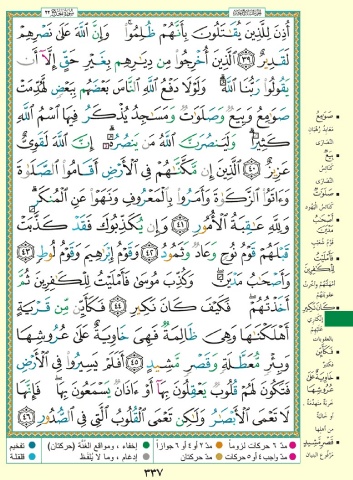 أُذِنَ لِلَّذِينَ يُقَٰتَلُونَ بِأَنَّهُمْ ظُلِمُوا۟ ۚ وَإِنَّ ٱللَّهَ عَلَىٰ نَصْرِهِمْ
لَقَدِيرٌ ٣٩ ٱلَّذِينَ أُخْرِجُوا۟ مِن دِيَٰرِهِم بِغَيْرِ حَقٍّ إِلَّآ أَن
يَقُولُوا۟ رَبُّنَا ٱللَّهُ ۗ وَلَوْلَا دَفْعُ ٱللَّهِ ٱلنَّاسَ بَعْضَهُم بِبَعْضٍ لَّهُدِّمَتْ
صَوَٰمِعُ وَبِيَعٌ وَصَلَوَٰتٌ وَمَسَٰجِدُ يُذْكَرُ فِيهَا ٱسْمُ ٱللَّهِ
كَثِيرًا ۗ وَلَيَنصُرَنَّ ٱللَّهُ مَن يَنصُرُهُۥٓ ۗ إِنَّ ٱللَّهَ لَقَوِىٌّ
عَزِيزٌ ٤٠ ٱلَّذِينَ إِن مَّكَّنَّٰهُمْ فِى ٱلْأَرْضِ أَقَامُوا۟ ٱلصَّلَوٰةَ
وَءَاتَوُا۟ ٱلزَّكَوٰةَ وَأَمَرُوا۟ بِٱلْمَعْرُوفِ وَنَهَوْا۟ عَنِ ٱلْمُنكَرِ ۗ
وَلِلَّهِ عَٰقِبَةُ ٱلْأُمُورِ ٤١ وَإِن يُكَذِّبُوكَ فَقَدْ كَذَّبَتْ
قَبْلَهُمْ قَوْمُ نُوحٍ وَعَادٌ وَثَمُودُ ٤٢ وَقَوْمُ إِبْرَٰهِيمَ وَقَوْمُ لُوطٍ ٤٣
وَأَصْحَٰبُ مَدْيَنَ ۖ وَكُذِّبَ مُوسَىٰ فَأَمْلَيْتُ لِلْكَٰفِرِينَ ثُمَّ
أَخَذْتُهُمْ ۖ فَكَيْفَ كَانَ نَكِيرِ ٤٤ فَكَأَيِّن مِّن قَرْيَةٍ
أَهْلَكْنَٰهَا وَهِىَ ظَالِمَةٌ فَهِىَ خَاوِيَةٌ عَلَىٰ عُرُوشِهَا
وَبِئْرٍ مُّعَطَّلَةٍ وَقَصْرٍ مَّشِيدٍ ٤٥ أَفَلَمْ يَسِيرُوا۟ فِى ٱلْأَرْضِ
فَتَكُونَ لَهُمْ قُلُوبٌ يَعْقِلُونَ بِهَآ أَوْ ءَاذَانٌ يَسْمَعُونَ بِهَا ۖ فَإِنَّهَا
لَا تَعْمَى ٱلْأَبْصَٰرُ وَلَٰكِن تَعْمَى ٱلْقُلُوبُ ٱلَّتِى فِى ٱلصُّدُورِ ٤٦
صَوَامِعُ
بِيَعٌ
صَلَوَاتٌ
أَصْحَابُ مَدْيَنَ
فَأَمْلَيْتُ لِلْكَافِرِينَ
كَانَ نَكِيرِ
فَكَأَيِّن
خَاوِيَةٌ عَلَى عُرُوشِهَا
قَصْرٍ مَّشِيدٍ
مرفوع البنيان
مدّ ٦ حركات لزوماً
مدّ ٢ أو ٤ أو ٦ جوازاً
إخفاء، ومواقع الغُنَّة (حركتان)
تفخيم
مدّ واجب ٤ أو ٥ حركات
مدّ حركتان
إدغام، وما لا يُلفَظ
قلقلة
٣٣٧